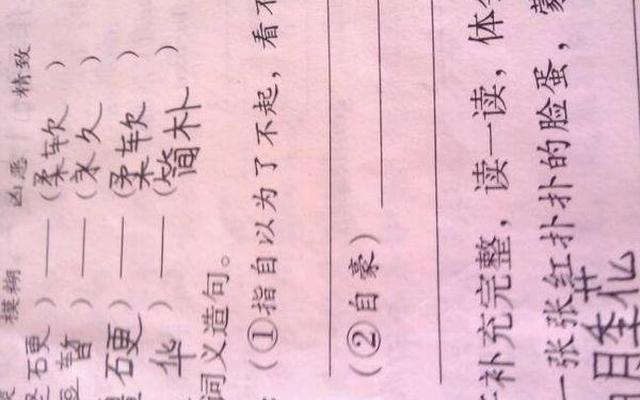 模糊 凶恶 精致
硬)——(柔软)
暂)——(永久)
硬)——(柔软)
华)——(简朴)
词义造句。
(①指自以为了不起，看不
(②自豪)
补充完整，读一读，体
一张张红扑扑的脸蛋，蒙